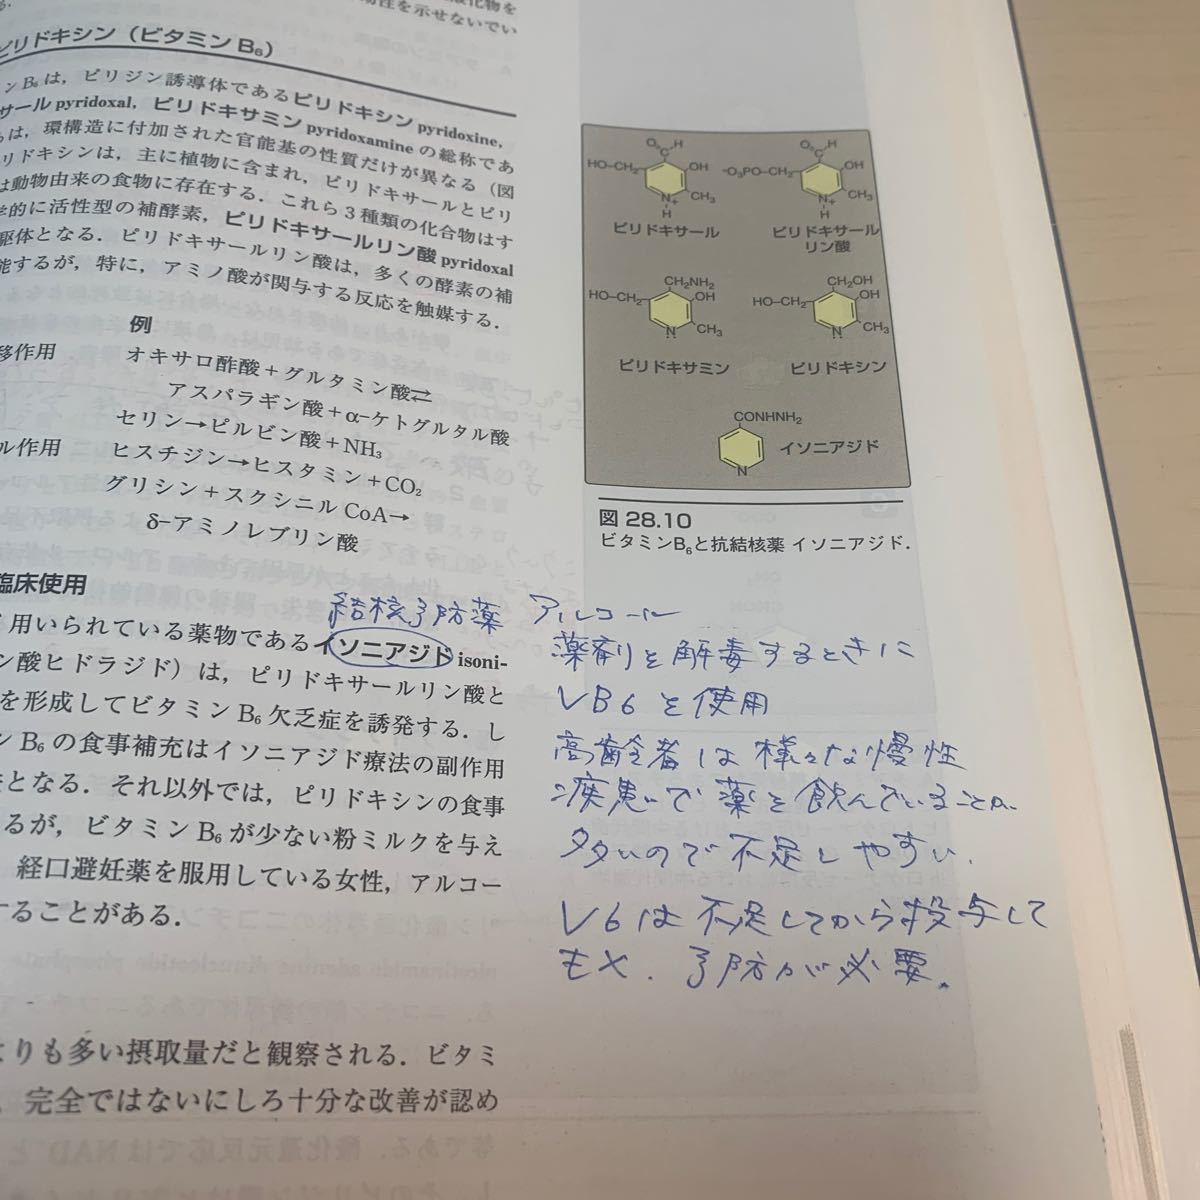 性を示せないでい
ピリドキシン（ビタミン B₆）
ン B₆は，ピリジン誘導体であるピリドキシン pyridoxine，
サール pyridoxal，ピリドキサミン pyridoxamine の総称であ
は，環構造に付加された官能基の性質だけが異なる（図
リドキシンは，主に植物に含まれ，ピリドキサールとピリ
は動物由来の食物に存在する．これら３種類の化合物はす
学的に活性型の補酵素，ピリドキサールリン酸 pyridoxal
駆体となる．ピリドキサールリン酸は，多くの酵素の補
能するが，特に，アミノ酸が関与する反応を触媒する．
例
移作用 オキサロ酢酸＋グルタミン酸⇄
アスパラギン酸＋α-ケトグルタル酸
セリン→ピルビン酸＋NH₃
ル作用 ヒスチジン→ヒスタミン＋CO₂
グリシン＋スクシニル CoA→
δ-アミノレブリン酸
臨床使用
用いられている薬物であるイソニアジド isoni-
ン酸ヒドラジド）は，ピリドキサールリン酸と
を形成してビタミン B₆ 欠乏症を誘発する．し
ン B₆ の食事補充はイソニアジド療法の副作用
となる．それ以外では，ピリドキシンの食事
るが，ビタミン B₆ が少ない粉ミルクを与え
経口避妊薬を服用している女性，アルコー
することがある．
よりも多い摂取量だと観察される．ビタミ
，完全ではないにしろ十分な改善が認め
O H
C
HO-CH₂ OH
CH₃
N+
H
ピリドキサール
O H
C
-O₃PO-CH₂ OH
CH₃
N+
H
ピリドキサール
リン酸
CH₂NH₂
HO-CH₂ OH
CH₃
N
ピリドキサミン
CH₂OH
HO-CH₂ OH
CH₃
N
ピリドキシン
CONHNH₂
N
イソニアジド
図 28.10
ビタミンB₆と抗結核薬 イソニアジド．
結核予防薬 アルコール
薬剤を解毒するときに
VB6を使用
高齢者は様々な慢性
疾患で薬を飲んでいることが
多いので不足しやすい．
V6は不足してから投与して
も×．予防が必要．